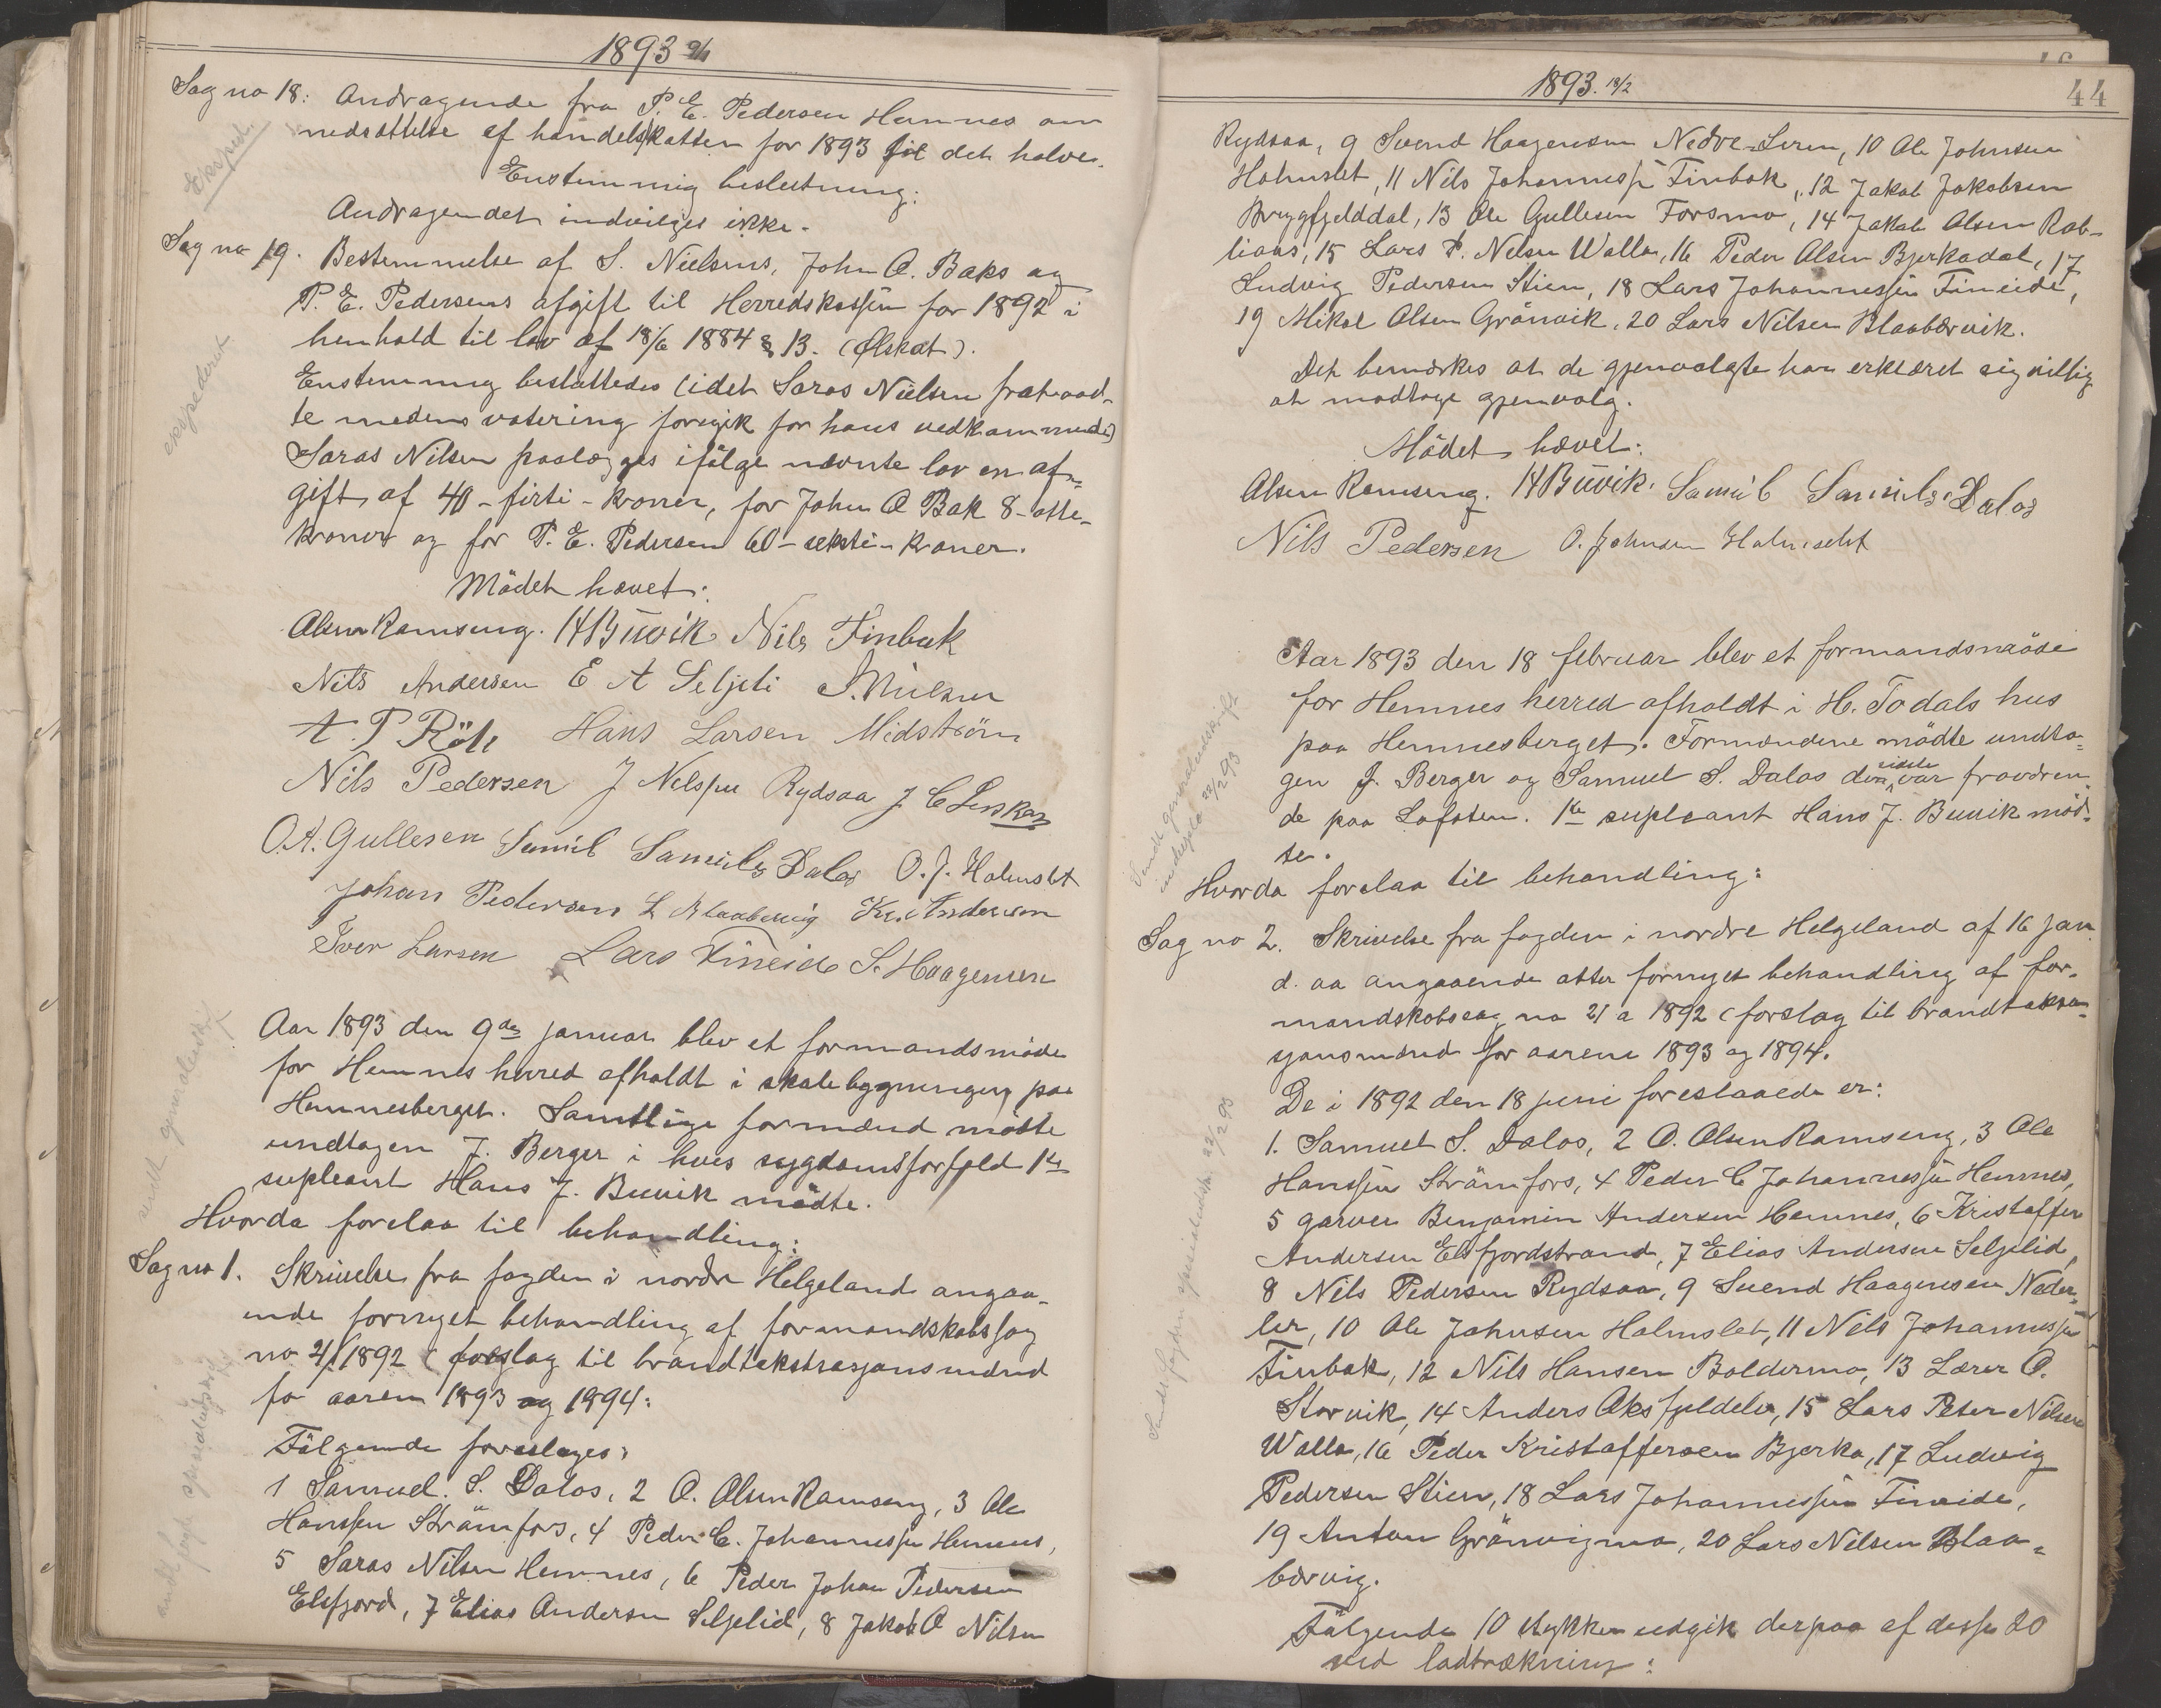 1893 9/1
Sag no 18: Andragende fra P. E. Pedersen Hemnes om
nedsættelse af handelsskatten for 1893 til det halve.
Enstemmig beslutning:
Andragendet indvilges ikke.
Sag no 19. Bestemmelse af S. Nielsens, John O. Baks og
P. E. Pedersens afgift til Herredskassen for 1892 i
henhold til lov af 18/6 1884 § 13. (Ølskat).
Enstemmig besluttedes (idet Saras Nielsen fratraad-
te medens votering foregik for hans vedkommende)
Saras Nilsen paalægges ifölge nævnte lov en af-
gift af 40 - firti - kroner, for John O Bak 8 - otte -
kroner og for P. E. Pedersen 60 - seksti - kroner.
Mödet hævet.
Olsen Ramseng. H Buvik Nils Finbak
Nils Andersen E A Seljeli S. Nielsen
A. P. Röli Hans Larsen Midström
Nils Pedersen J Nelssen Rydsaa J C Leskar
O. A. Gullesen Samúel Samúels Dalos O. J. Holmslet
Johan Pedersen L Blaabervig Kr. Andersen
Iver Larsen Lars Fineide S. Haagensen
Aar 1893 den 9de januar blev et formandsmöde
for Hemnes herred afholdt i skolebygningen paa
Hemnesberget. Samtlige formænd mödte
undtagen J. Berger i hvis sygdomsforfald 1ste
supleant Hans J. Buvik mödte.
Hvorda forelaa til behandling:
Sag no 1. Skrivelse fra fogden i nordre Helgeland angaa-
ende fornyet behandling af formandskabssag
no 21/1892 (forslag til brandtakstrasjonsmænd
for aaren 1893 og 1894:
Fölgende foreslages:
1 Samuel. S. Dalos, 2 O. Olsen Ramseng, 3 Ole
Hanssen Strömfors, 4 Peder C. Johannessen Hemnes,
5 Saras Nilsen Hemnes, 6 Peder Johan Pedersen
Elsfjord, 7 Elias Andersen Seljelid, 8 Jakob O Nilsen
Ekspedt.
ekspederet
sendt generalutskrift
44
1893. 18/2
Rydsaa, 9 Svend Haagensen Nedre-Leren, 10 Ole Johnsen
Holmslet, 11 Nils Johannessen Finbak, 12 Jakob Jakobsen
Brygfjelddal, 13 Ole Gullesen Forsmo, 14 Jakob Olsen Rab-
liaas, 15 Lars P. Nelsen Walla, 16 Peder Olsen Bjerkadal, 17
Ludvig Pedersen Stien, 18 Lars Johannessen Fineide,
19 Mikal Olsen Grönvik, 20 Lars Nilsen Blaabærvik.
Det bemærkes at de gjenvalgte har erklæret sig villig
at modtage gjenvalg.
Mödet hævet:
Olsen Ramseng. H Buvik. Samúel Samúels. Dalos
Nils Pedersen O. Johnsen Holmslet
Aar 1893 den 18 februar blev et formandsmöde
for Hemnes herred afholdt i H. Todals hus
paa Hemnesberget. Formændene mödte undta-
gen J. Berger og Samuel S. Dalos den sidste var fraværen-
de paa Lofoten. 1ste supleant Hans J. Buvik möd-
te.
Hvorda forelaa til behandling:
Sag no 2. Skrivelse fra fogden i nordre Helgeland af 16 jan
d. aa angaaende atter fornyet behandling af for-
mandskabssag no 21 a 1892 (forslag til brandtakstra-
sjonsmænd for aarene 1893 og 1894.
De i 1892 den 18 juni foreslaaede er:
1. Samuel S. Dalos, 2 O. Olsen Ramseng, 3 Ole
Hanssen Strömfors, 4 Peder C Johannessen Hemnes,
5 garver Benjamin Andersen Hemnes, 6 Kristoffer
Andersen Elsfjordstrand, 7 Elias Andersen Seljelid,
8 Nils Pedersen Rydsaa, 9 Svend Haagensen Neder-
ler, 10 Ole Johnsen Holmslet, 11 Nils Johannessen
Finbak, 12 Nils Hansen Boldermo, 13 Lærer O.
Storvik, 14 Anders Oksfjeldelv, 15 Lars Peter Nilsen
Walla, 16 Peder Kristoffersen Bjerka, 17 Ludvig
Pedersen Stien, 18 Lars Johannessen Fineide,
19 Anton Grönvigmo, 20 Lars Nilsen Blaa-
bærvig.
Fölgende 10 stykker udgik derpaa af disse 20
ved lodtrækning:
Sendt generaludskrift
22/2 93
Sendt fogden specialudskr. 22/2 93